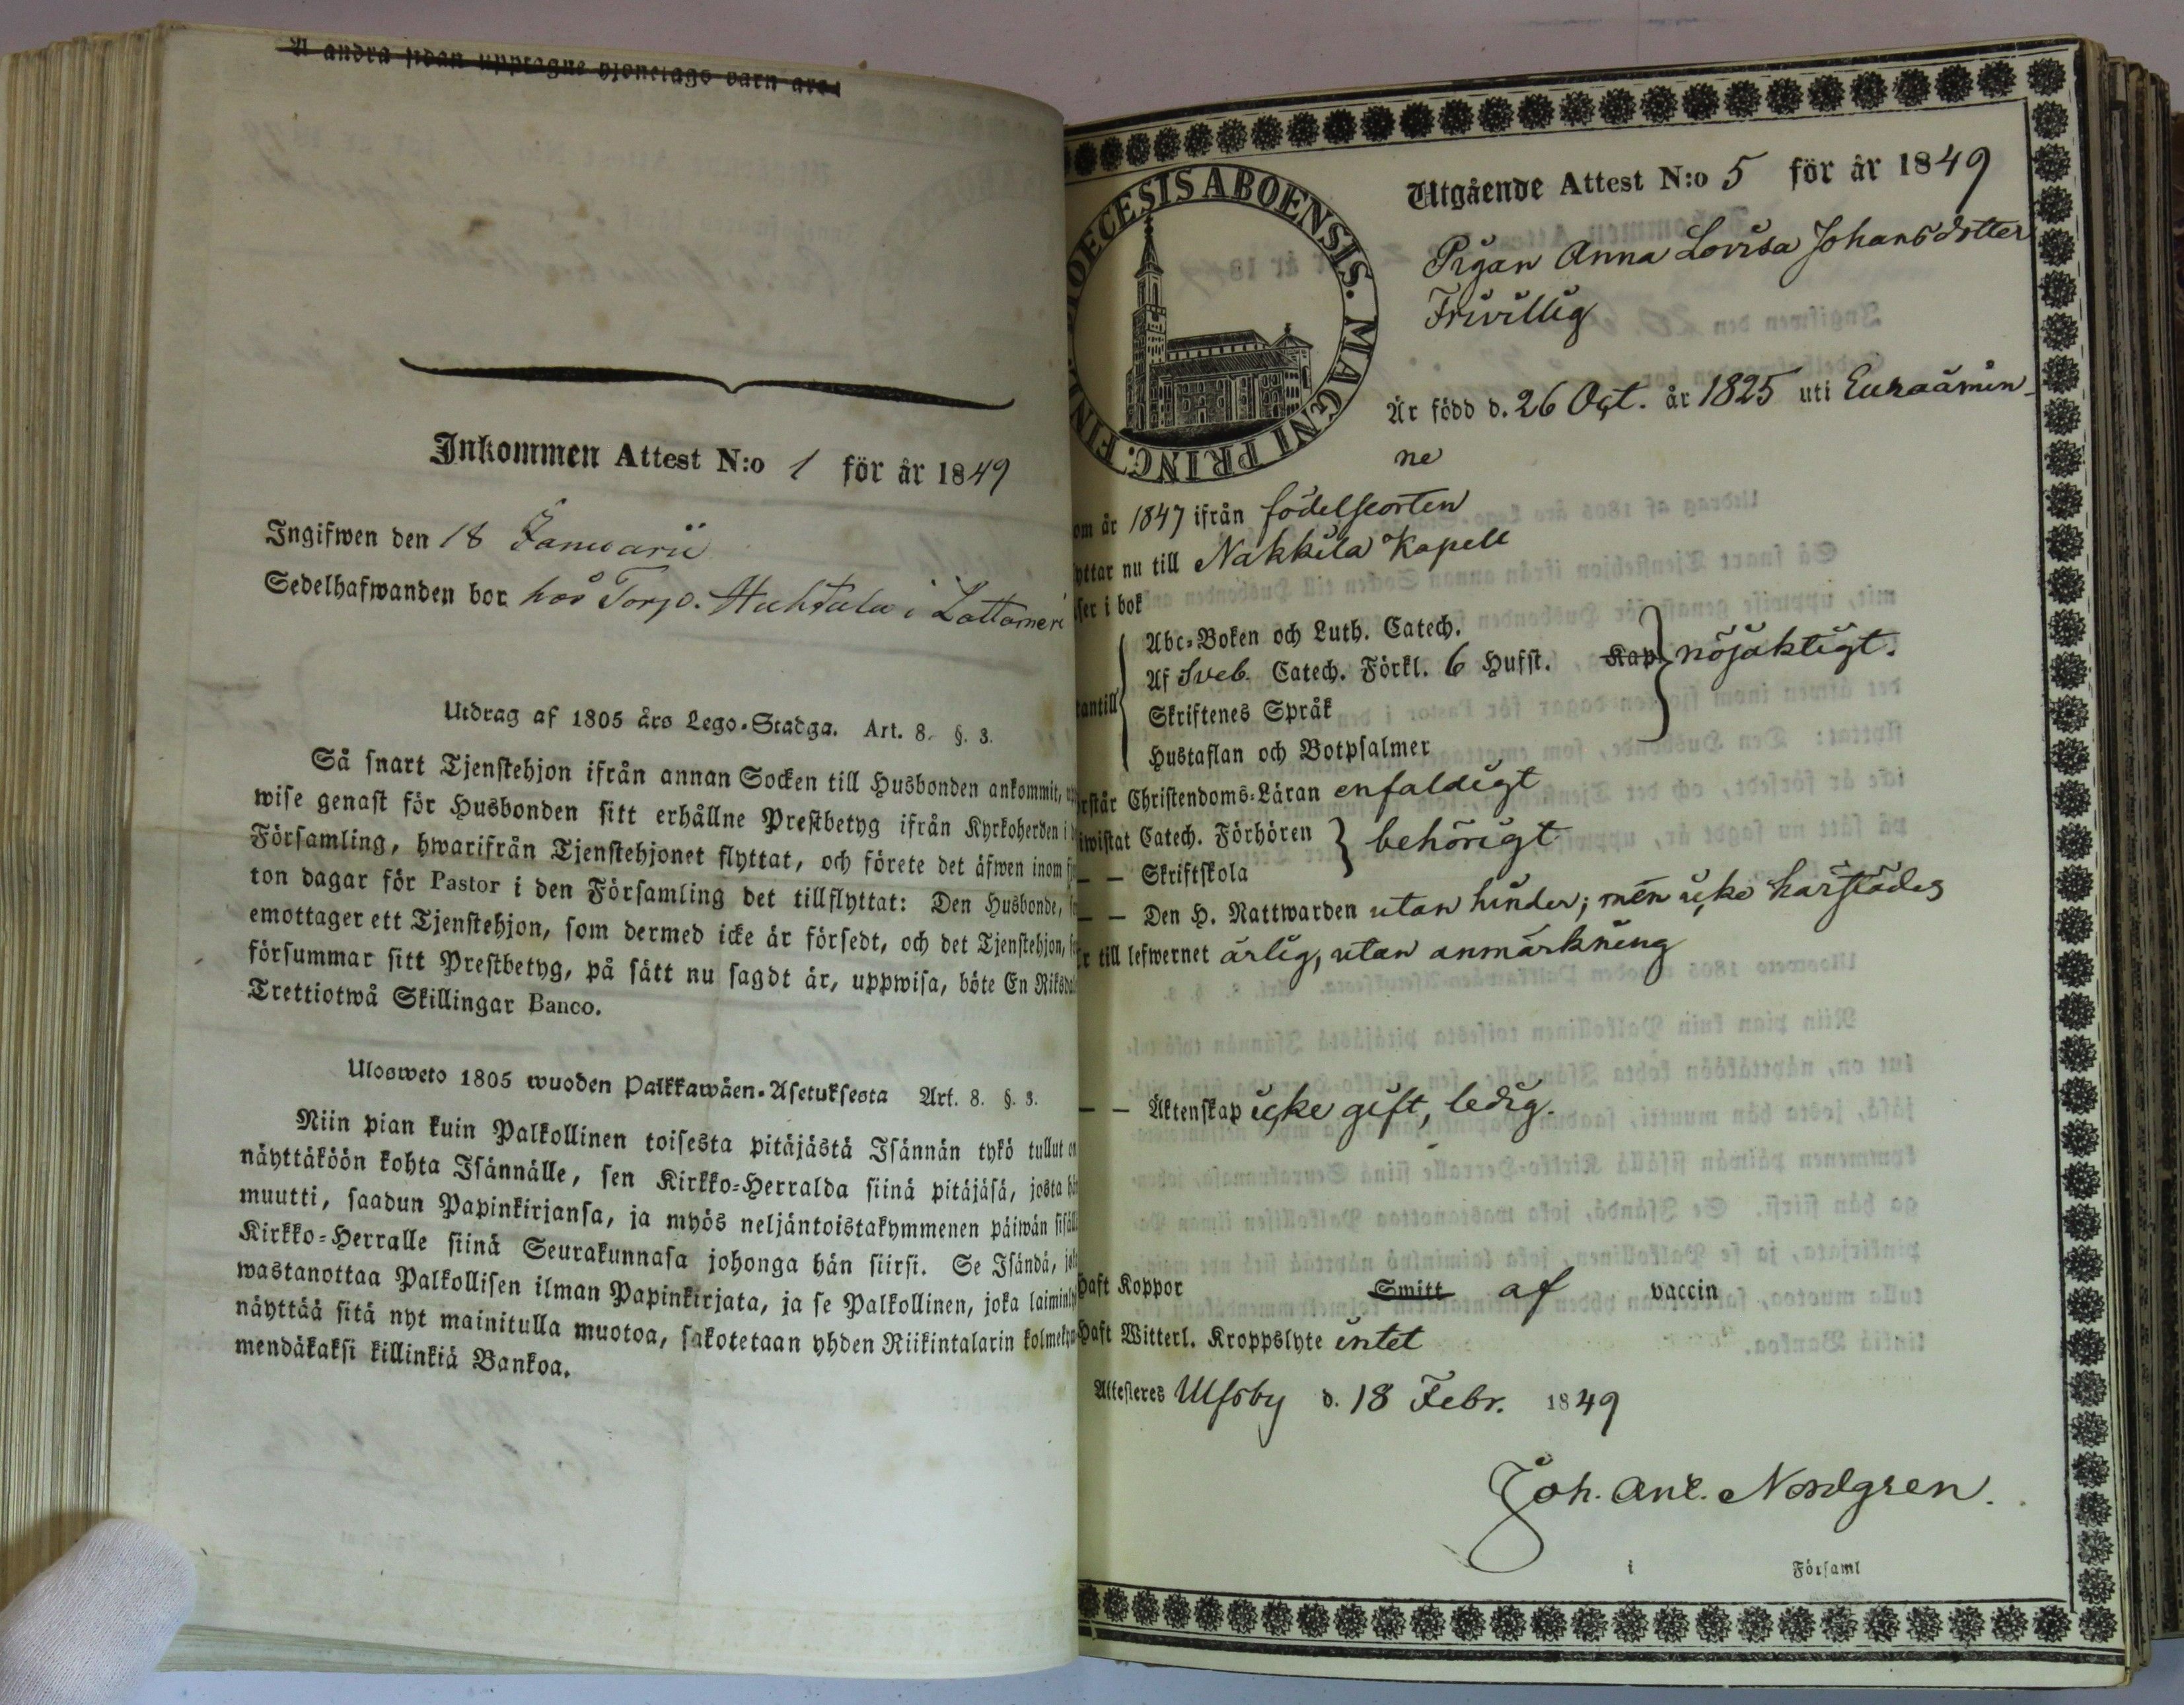 Å andra sidan upptagne hjonelags barn äro:
Inkommen Attest N:o 1 för år 1849
Ingifwen den 18 Januarii
Sedelhafwanden bor hos Torp. Huhtala i Lattomeri
Utdrag af 1805 års Lego-Stadga. Art. 8. §. 3.
Så snart Tjenstehjon ifrån annan Socken till Husbonden ankommit, upp
wise genast för Husbonden sitt erhållne Prestbetyg ifrån Kyrkoherden i
Församling, hwarifrån Tjenstehjonet flyttat, och förete det äfwen inom
ton dagar för Pastor i den Församling det tillflyttat: Den Husbonde,
emottager ett Tjenstehjon, som dermed icke är försedt, och det Tjenstehjon,
försummar sitt Prestbetyg, på sätt nu sagdt är, uppwisa, böte En Riksda
Trettiotwå Skillingar Banco.
Ulosweto 1805 wuoden Palkkawäen-Asetuksesta Art. 8. §. 3.
Niin pian kuin Palkollinen toisesta pitäjästä Isännän tykö tullut on
näyttäköön kohta Isännälle, sen Kirkko-Herralda siinä pitäjäsä, josta hän
muutti, saadun Papinkirjansa, ja myös neljäntoistakymmenen päiwän sisällä
Kirkko-Herralle siinä Seurakunnasa johonga hän siirsi. Se Isändä, joka
wastanottaa Palkollisen ilman Papinkirjata, ja se Palkollinen, joka laiminly
näyttää sitä nyt mainitulla muotoa, sakotetaan yhden Riikintalarin kolmekym
mendäkaksi killinkiä Bankoa.
DIOECESIS ABOENSIS. MAGNI PRINC. FINL.
Utgående Attest N:o 5 för år 1849
Pigan Anna Lovisa Johansdotter
Frivillig
Är född d. 26 Oct. år 1825 uti Euraåmin-
ne
om år 1847 ifrån födelseorten
yttar nu till Nakkila Kapell
ser i bok
Abc-Boken och Luth. Catech.
Af Sveb. Catech. Förkl. 6 Hufst. Kap. nöjaktigt.
tantill
Skriftenes Språk
Hustaflan och Botpsalmer
rstår Christendoms-Läran enfaldigt
iwistat Catech. Förhören behörigt
— — Skriftskola
— — Den H. Nattwarden utan hinder; men icke härstädes
r till lefwernet ärlig, utan anmärkning
— — Äktenskap icke gift, ledig.
Haft Koppor Smitt af vaccin
Haft Witterl. Kroppslyte intet
Attesteres Ulfsby d. 18 Febr. 1849
Joh. Ant. Nordgren.
i Församl